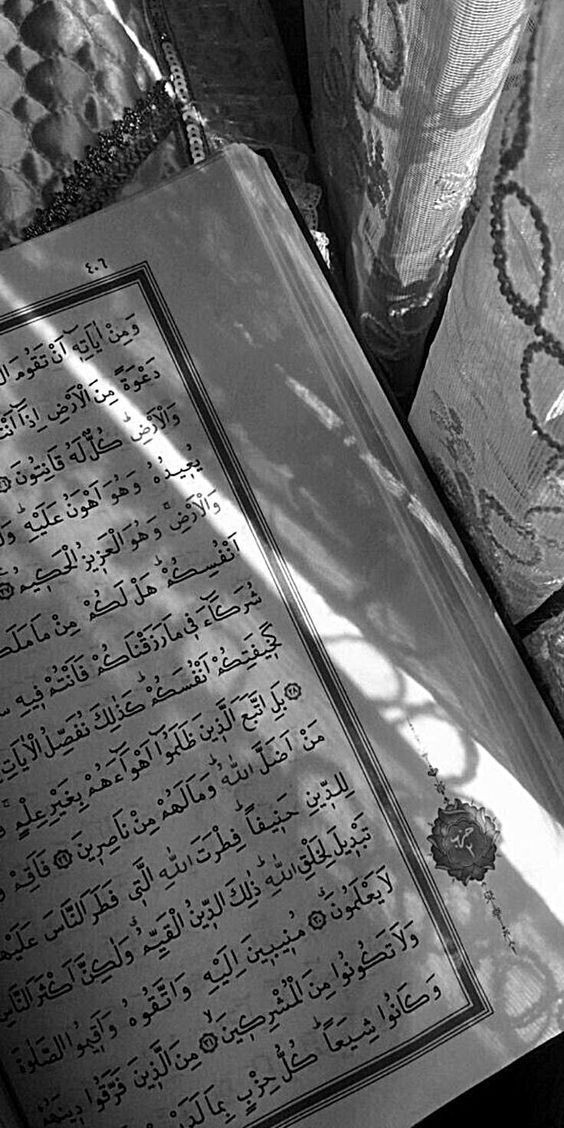 ٤٠٦
وَمِنْ اٰيَاتِه۪ٓ اَنْ تَقُومَ
دَعْوَةً مِنَ الْاَرْضِ اِذَٓا
وَالْاَرْضِۜ كُلٌّ لَهُ قَانِتُونَ
يُع۪يدُهُ وَهُوَ اَهْوَنُ عَلَيْهِۜ
وَالْاَرْضِۚ وَهُوَ الْعَز۪يزُ الْحَك۪يمُ ﴿٢٧﴾
اَنْفُسِكُمْۜ هَلْ لَكُمْ مِنْ مَا
شُرَكَٓاءَ ف۪ي مَا رَزَقْنَاكُمْ فَاَنْتُمْ ف۪يهِ
كَخ۪يفَتِكُمْ اَنْفُسَكُمْۜ كَذٰلِكَ نُفَصِّلُ الْاٰيَاتِ
﴿٢٨﴾ بَلِ اتَّبَعَ الَّذ۪ينَ ظَلَمُٓوا اَهْوَٓاءَهُمْ بِغَيْرِ عِلْمٍۚ
مَنْ اَضَلَّ اللّٰهُۜ وَمَا لَهُمْ مِنْ نَاصِر۪ينَ ﴿٢٩﴾ فَاَقِمْ
لِلدّ۪ينِ حَن۪يفاًۜ فِطْرَتَ اللّٰهِ الَّت۪ي فَطَرَ النَّاسَ عَلَيْهَا
تَبْد۪يلَ لِخَلْقِ اللّٰهِۜ ذٰلِكَ الدّ۪ينُ الْقَيِّمُۗ وَلٰكِنَّ اَكْثَرَ النَّاسِ
لَا يَعْلَمُونَ ﴿٣٠﴾ مُن۪يب۪ينَ اِلَيْهِ وَاتَّقُوهُ وَاَق۪يمُوا الصَّلٰوةَ
وَلَا تَكُونُوا مِنَ الْمُشْرِك۪ينَۙ ﴿٣١﴾ مِنَ الَّذ۪ينَ فَرَّقُوا د۪ينَهُمْ
وَكَانُوا شِيَعاًۜ كُلُّ حِزْبٍ بِمَا